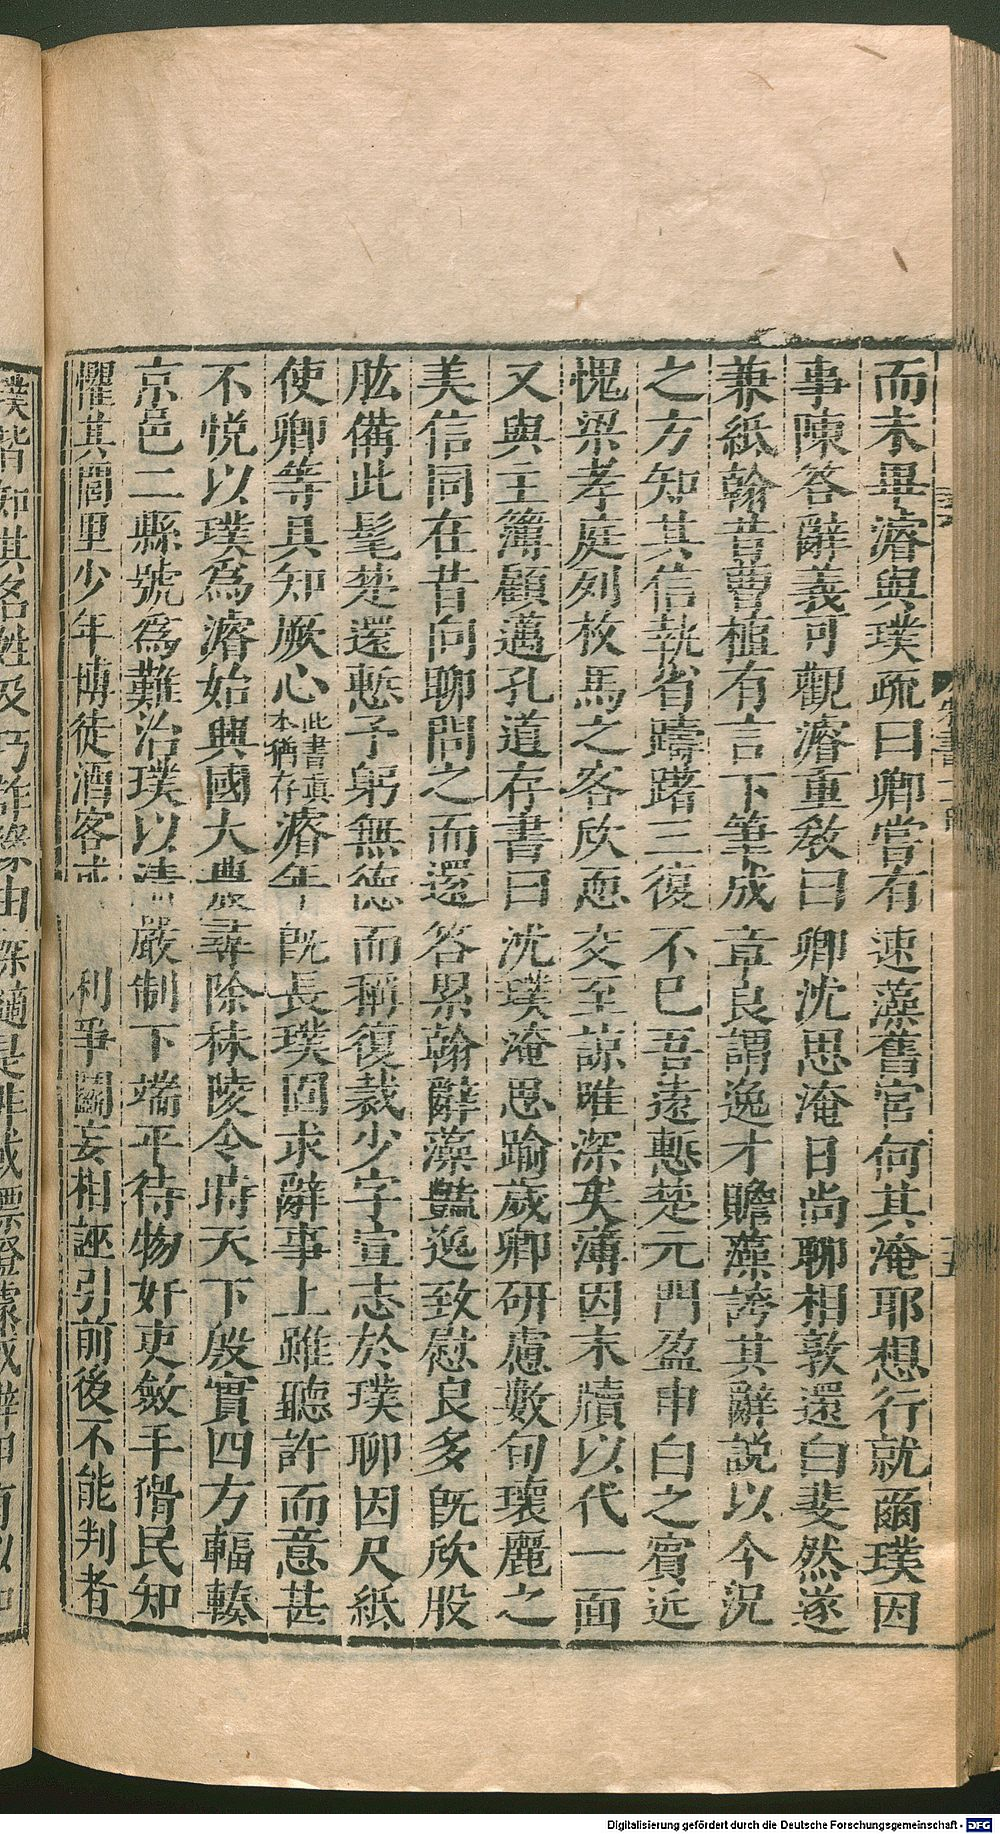 而未畢濬與璞疏曰卿嘗有速藻舊官何其淹耶想行就爾璞因
事陳答辭義可觀濬重敎曰卿沈思淹日尚聊相敦還白斐然遂
兼紙翰昔曹植有言下筆成章良謂逸才贍藻誇其辭說以今況
之方知其信執省躊躇三復不已吾遠慙楚元門盈申白之賓近
愧梁孝庭列枚馬之客欣恧交至諒唯深矣薄因末牘以代一面
又與主簿顧邁孔道存書曰沈璞淹思踰歲卿研慮數旬瓌麗之
美信同在昔向聊問之而還答累翰辭藻豔逸致慰良多旣欣股
肱備此髦楚還慙予躬無德而稱復裁少字宣志於璞聊因尺紙
使卿等具知厥心此書真本猶存濬年旣長璞固求辭事上雖聽許而意甚
不悅以璞爲濬始興國大農尋除秣陵令時天下殷實四方輻輳
京邑二縣號爲難治璞以清嚴制下端平待物奸吏斂手猾民知
懼其閭里少年博徒酒客 利爭鬭妄相誣引前後不能判者
璞皆知其名姓及巧詐緣由
Digitalisierung gefördert durch die Deutsche Forschungsgemeinschaft - DFG